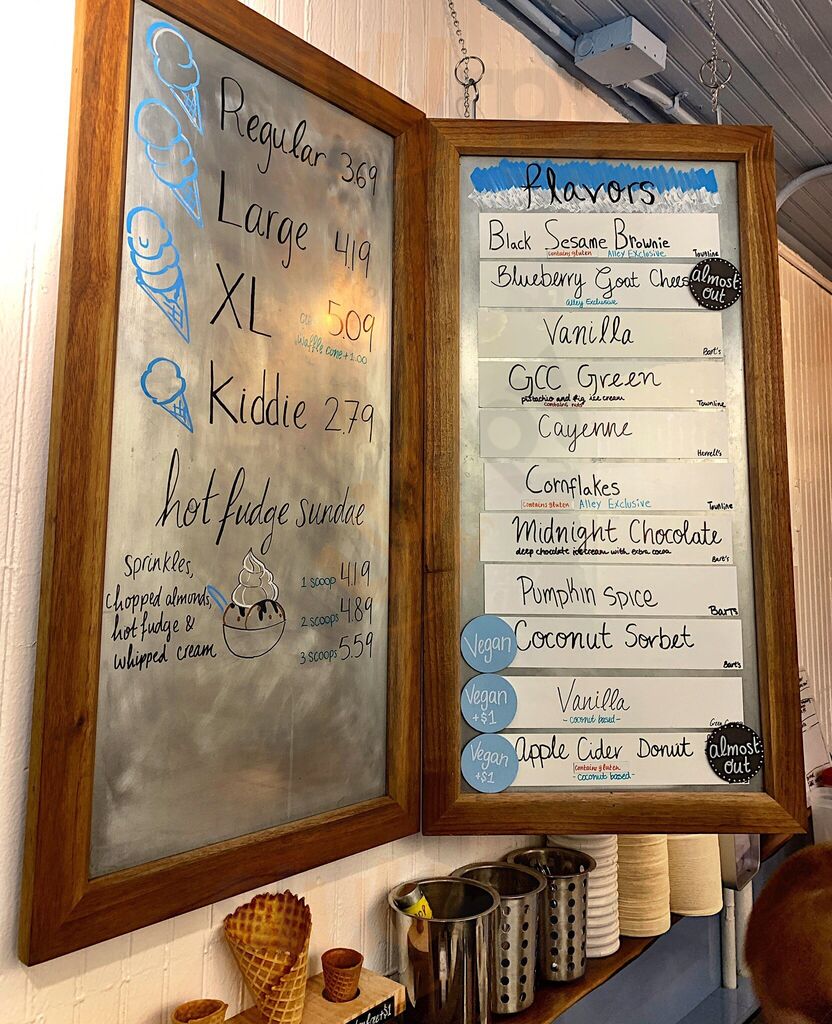 Regular 3.69
Large 4.19
XL 5.09
waffle cone +1.00
Kiddie 2.79
hot fudge sundae
Sprinkles,
chopped almonds,
hot fudge &
whipped cream
1 scoop 4.19
2 scoops 4.89
3 scoops 5.59
flavors
Black Sesame Brownie
contains gluten Alley Exclusive Townline
Blueberry Goat Chees
Alley Exclusive
almost out
Vanilla
Bart's
GCC Green
pistachio and fig ice cream
contains nuts
Townline
Cayenne
Herrell's
Cornflakes
contains gluten Alley Exclusive Townline
Midnight Chocolate
deep chocolate icecream with extra cocoa
Bart's
Pumpkin Spice
Bart's
Vegan Coconut Sorbet
Bart's
Vegan +$1
Vanilla
- coconut based -
Vegan +$1
Apple Cider Donut
contains gluten
- coconut based -
almost out